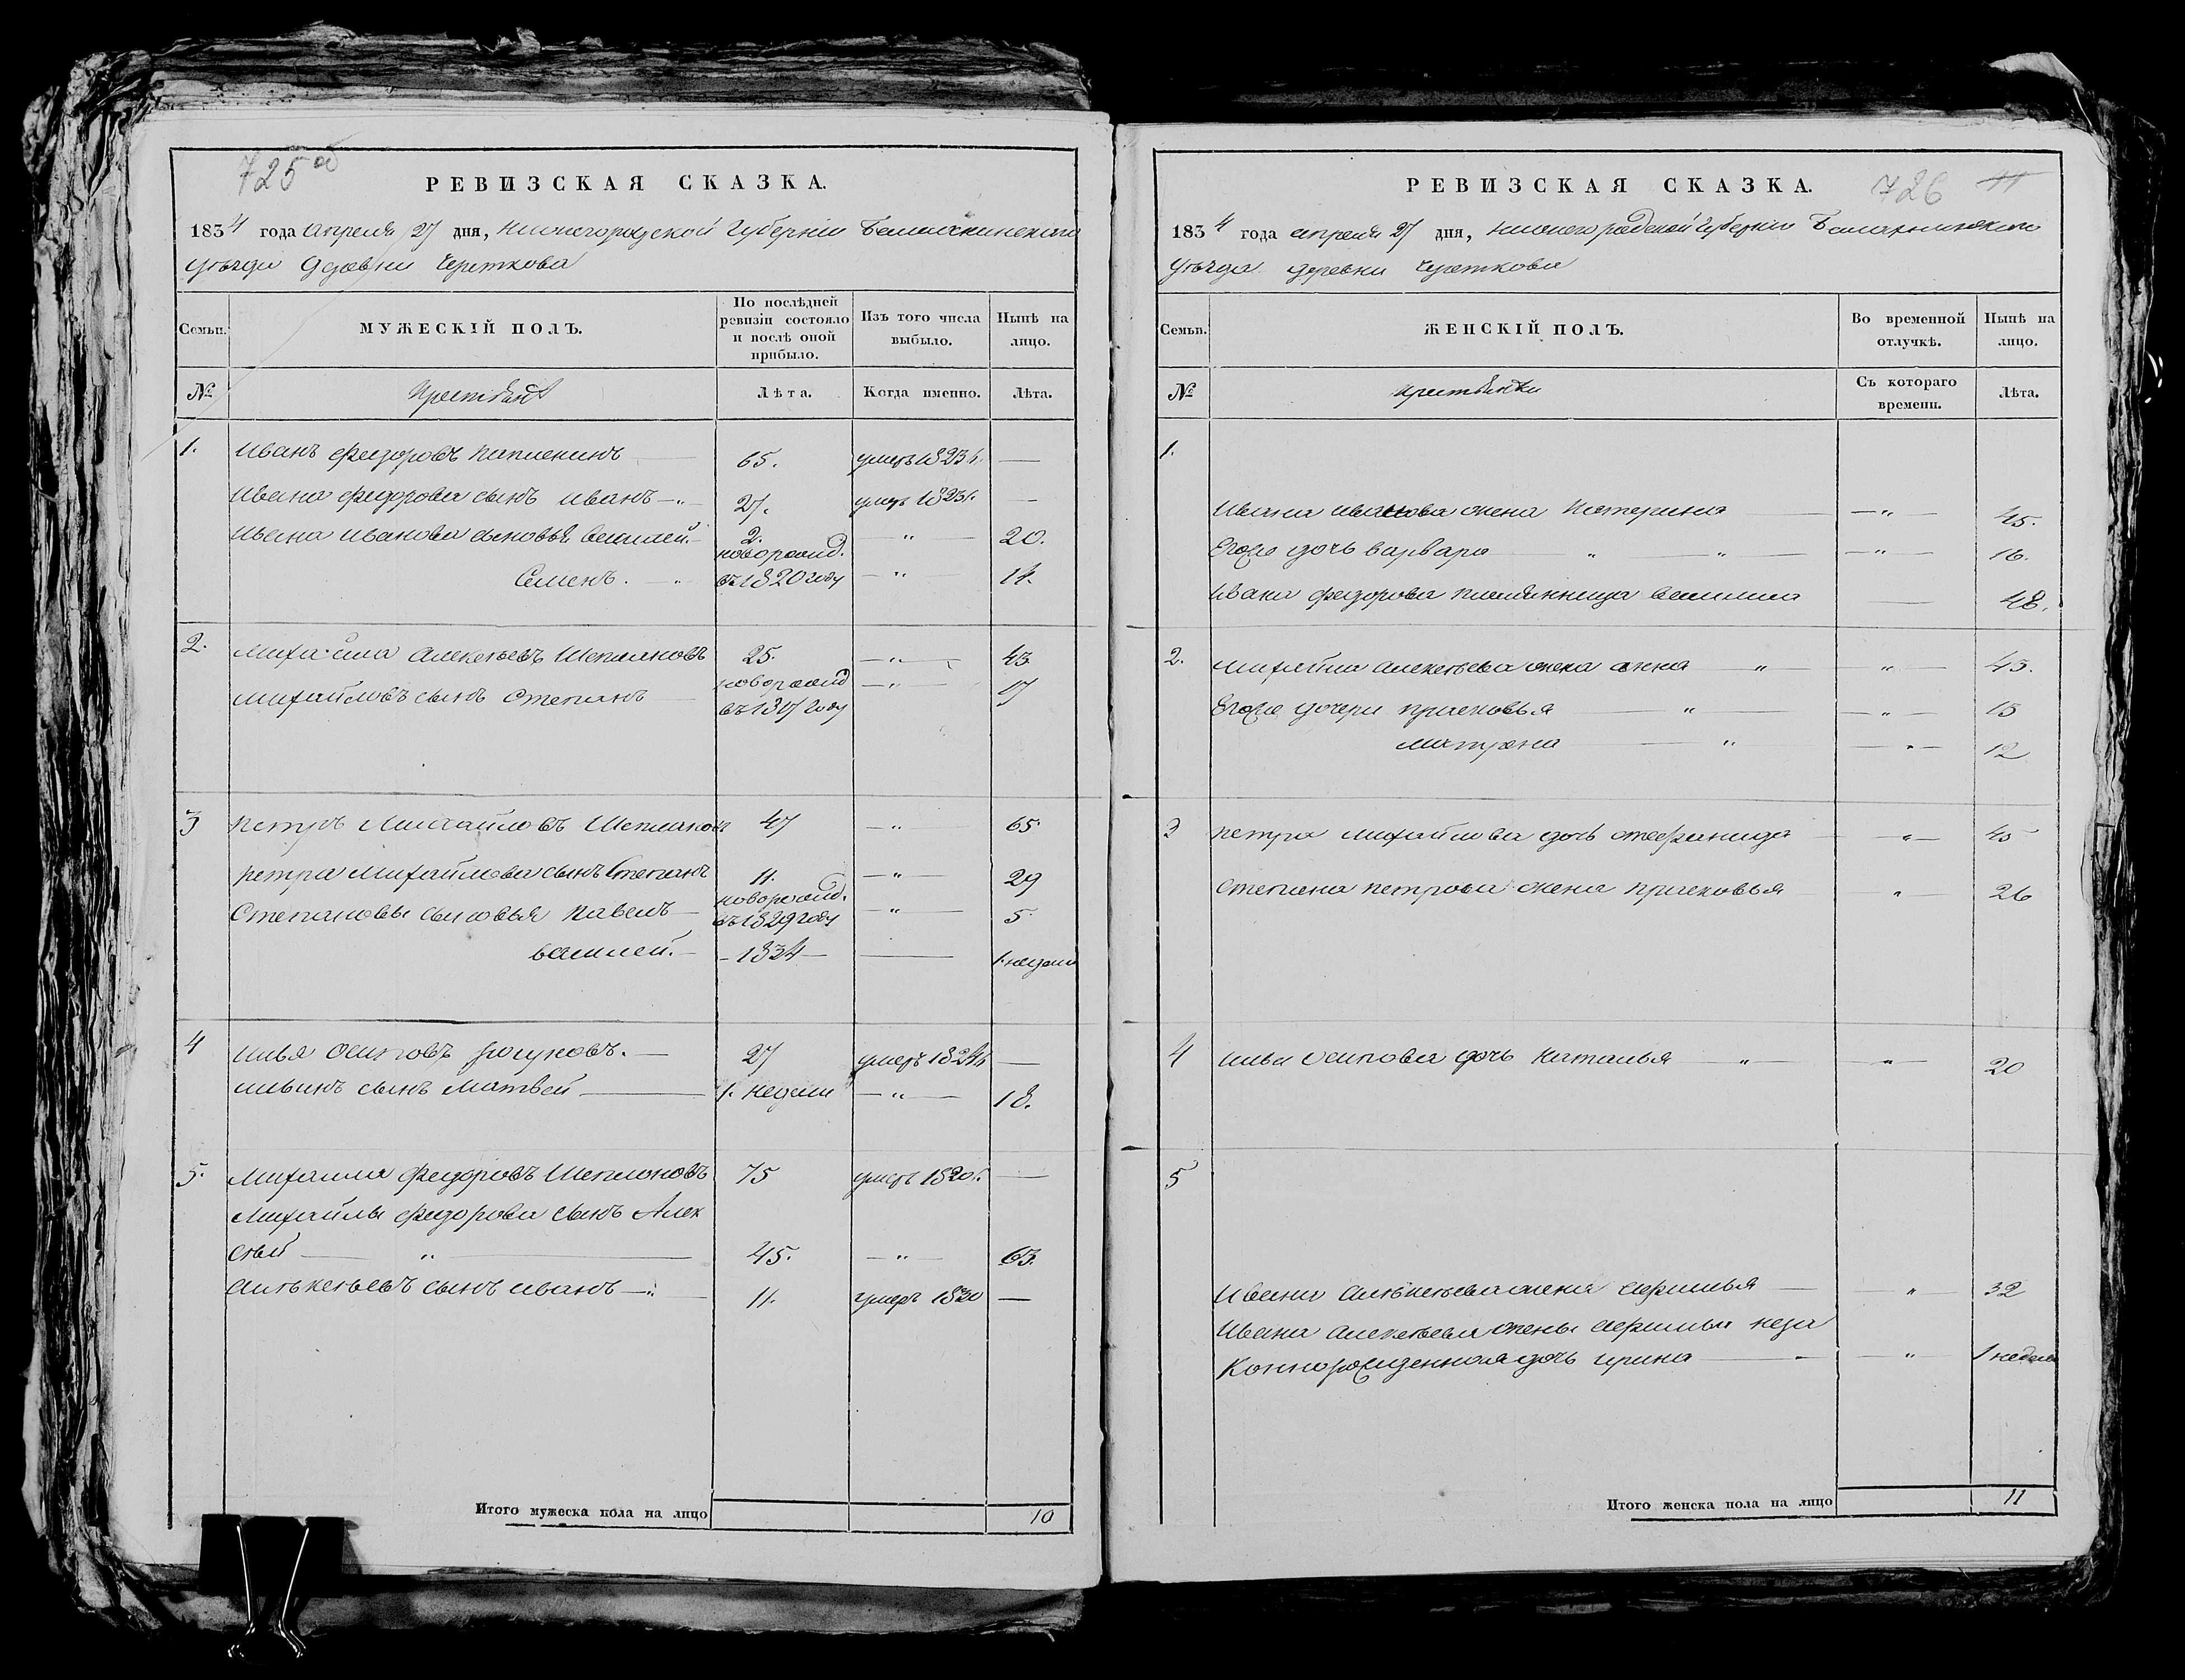 725 об
РЕВИЗСКАЯ СКАЗКА.
1834 года апреля 27 дня, Нижегородской Губернiи Балахнинскаго
уѣзда деревни
Семьи.
МУЖЕСКІЙ ПОЛЪ.
По послѣдней ревизіи состояло и послѣ оной прибыло.
Изъ того числа выбыло.
Нынѣ на лицо.
№
Крестьяне
Лѣта.
Когда именно.
Лѣта.
1. Иванъ Федоровъ 65. умеръ 1823 г. —
Ивана Федорова сынъ Иванъ —„— 27. умеръ 1823 г. —
Ивана Иванова сыновья Василей. 2. —„— 20.
Семенъ. —„ новорожд. въ 1820 году —„— 14.
2. Михайла Алексѣевъ Шепмяковъ 25. —„— 43
Михайловъ сынъ Степанъ новорожд въ 1817 году —„— 17
3 Петръ Михайловъ 47 —„— 65
Петра Михайлова сынъ Степанъ 11. —„— 29
Степановы сыновья Павелъ — новорожд. въ 1829 году —„— 5.
Василей. — -1834- — 1. недели
4 Илья Осиповъ 27 умеръ 1824 г —
Ильинъ сынъ Матвей — 1. недели —„— 18.
5. Михаила Федоровъ 75 умеръ 1820 г. —
Михайлы Федорова сынъ Алек
сѣй — „ — 45. —„— 63.
Алѣксѣевъ сынъ Иванъ —„— 11. умеръ 1820 —
Итого мужеска пола на лицо 10
РЕВИЗСКАЯ СКАЗКА.
726 11
1834 года апреля 27 дня, Нижегородской Губернiи Балахнинскаго
уѣзда деревни
Семьи.
ЖЕНСКІЙ ПОЛЪ.
Во временной отлучкѣ.
Нынѣ на лицо.
№
Крестьянки
Съ котораго времени.
Лѣта.
1.
Ивана Иванова жена Катерина —„— 45.
Егоже дочь Варвара — „ — „ — —„— 16.
Ивана Федорова племянница — 48.
2. Михайлы Алексѣева жена Анна „ — „ — 43.
Егоже дочери Прасковья — „ — —„— 15
Матрена — „ —„— 12
3 Петра Михайлова дочь Стефанида —„— 45
Степана Петрова жена Прасковья „ — 26
4 Ильи Осипова дочь Наталья „ — „ — 20
5
Ивана Алѣксѣева жена Афимья — — „ — 32
Ивана Алексѣева жены Афимьи неза
коннорожденная дочь Ирина — —„— 1 неделя
Итого женска пола на лицо 11